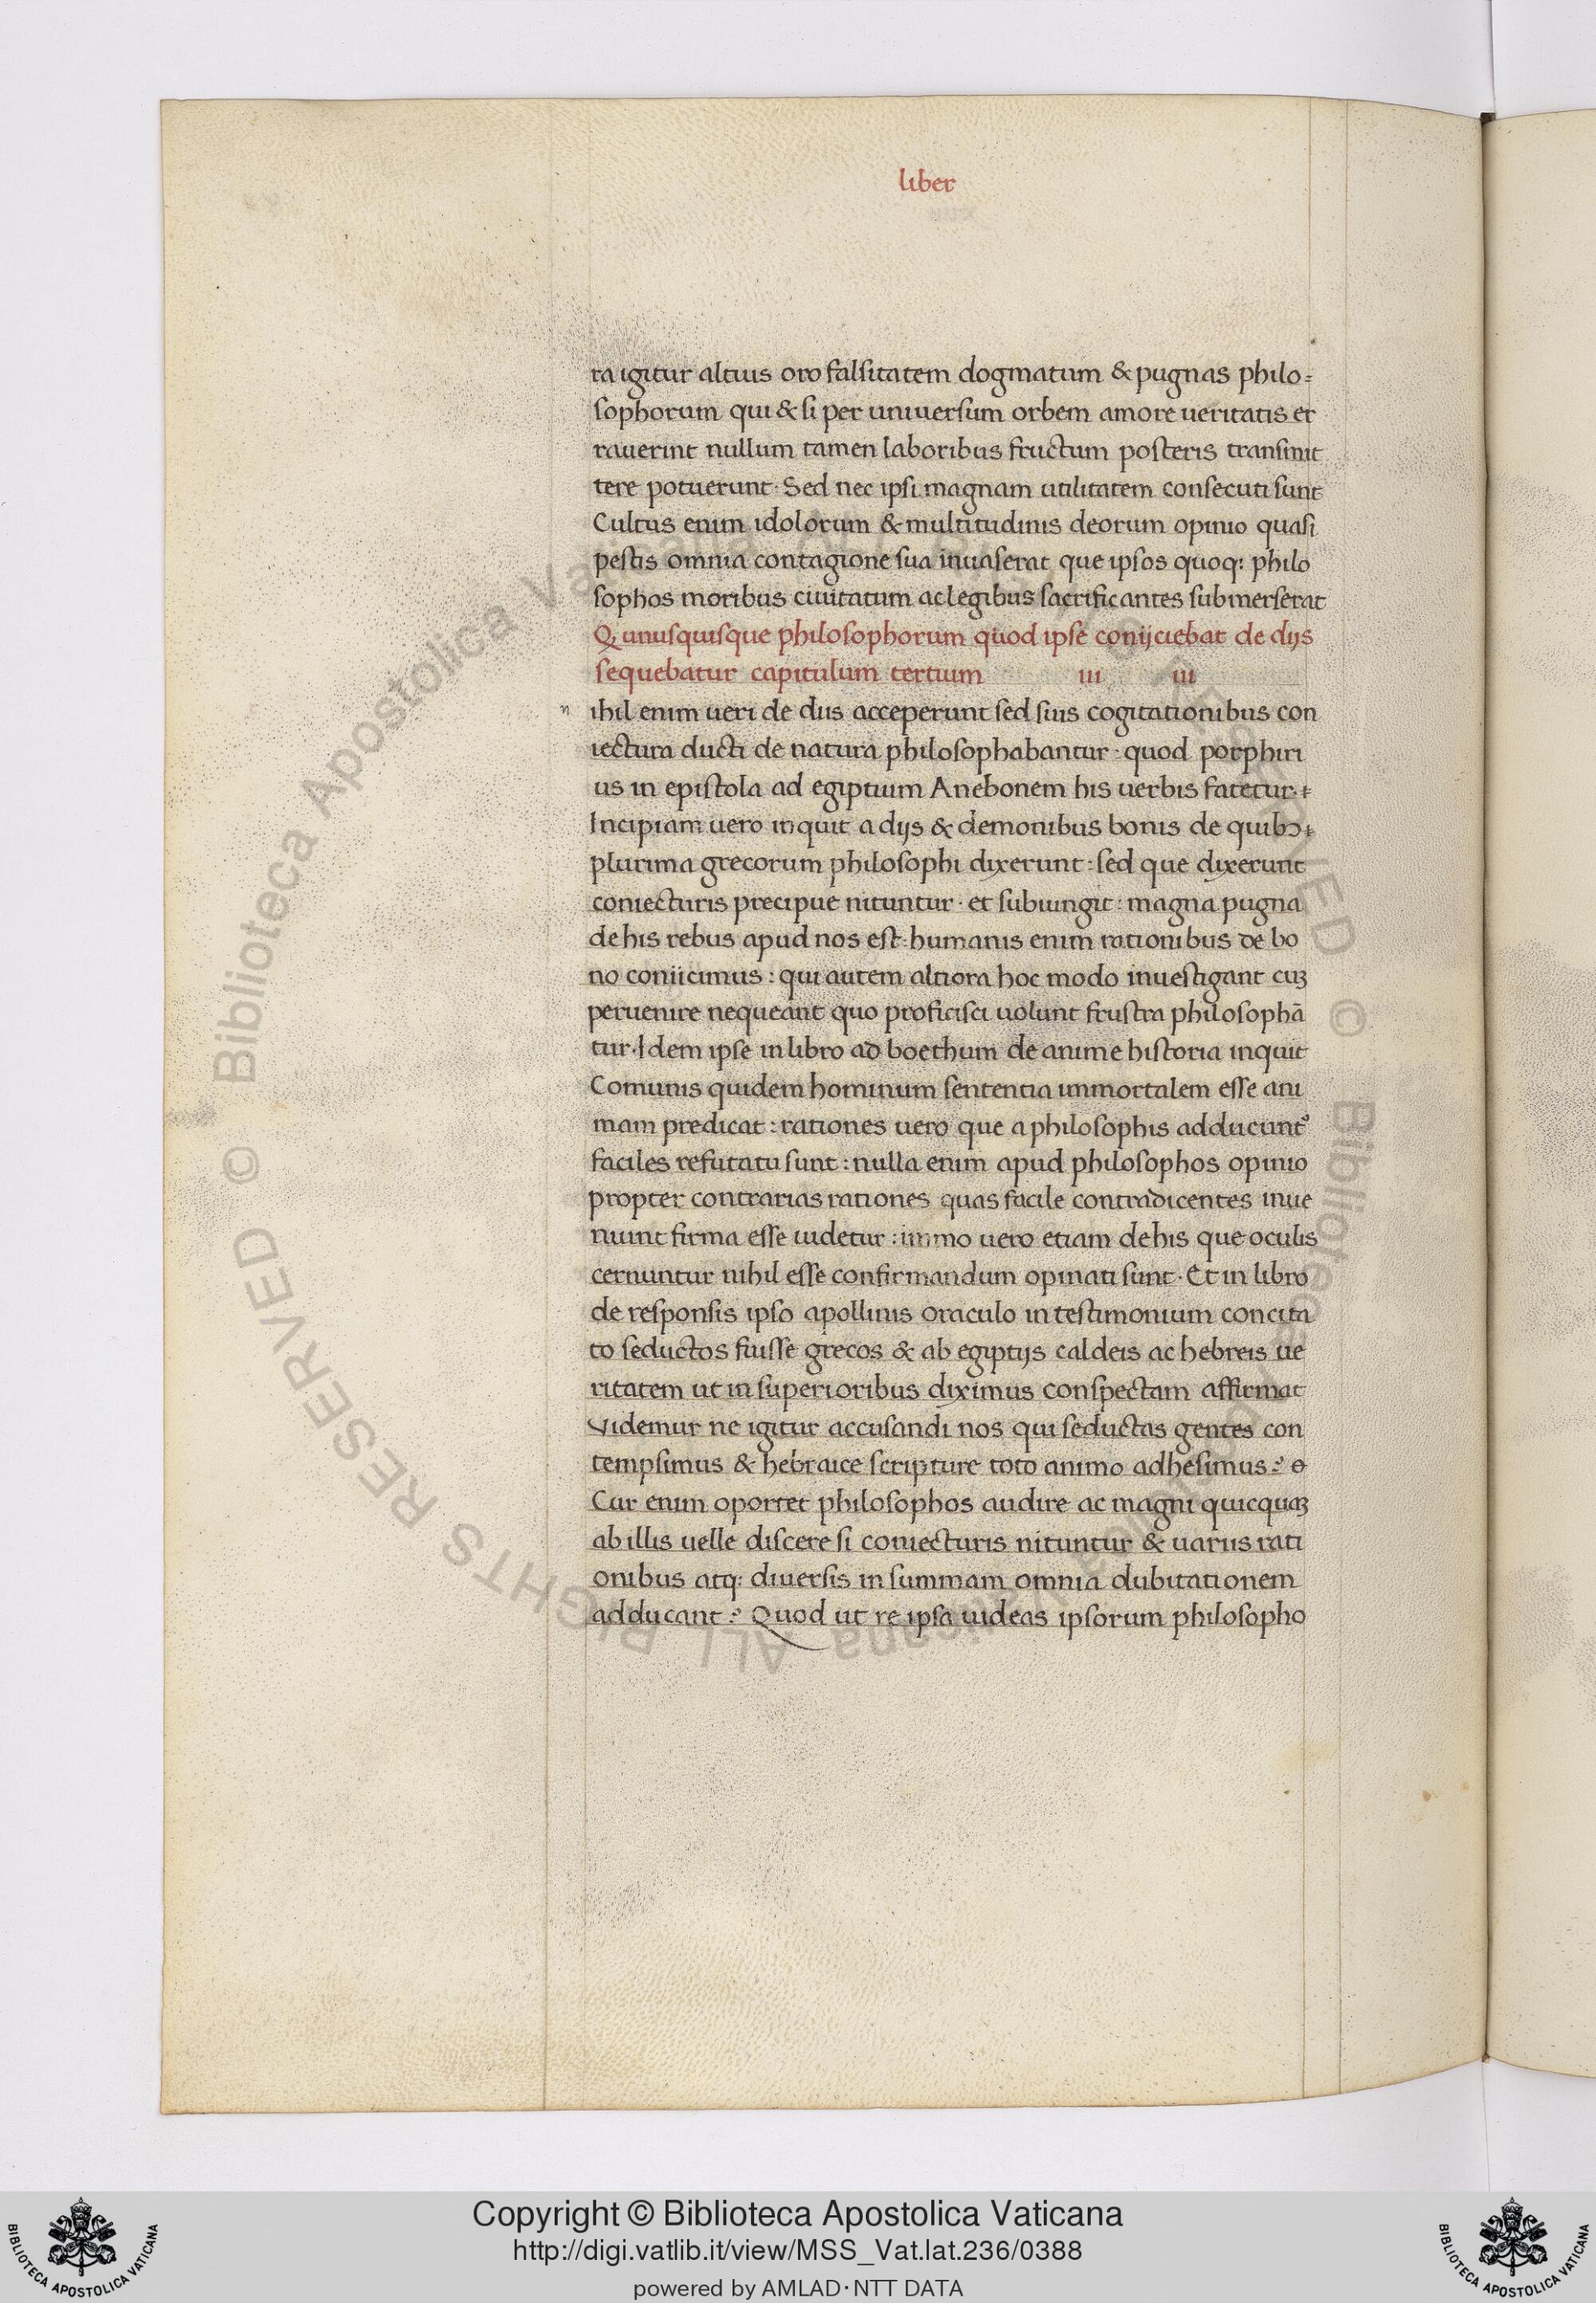 liber
ra igitur altius oro falsitatem dogmatum & pugnas philo=
sophorum qui & si per universum orbem amore ueritatis er
rauerint nullum tamen laboribus fructum posteris transmit
tere potuerunt· Sed nec ipsi magnam utilitatem consecuti sunt
Cultus enim idolorum & multitudinis deorum opinio quasi
pestis omnia contagione sua inuaserat que ipsos quoq: philo
sophos moribus ciuitatum ac legibus sacrificantes submerserat
Q unusquisque philosophorum quod ipse conijciebat de dijs
sequebatur capitulum tertium iii iii
n ihil enim ueri de diis acceperunt sed suis cogitationibus con
iectura ducti de natura philosophabantur· quod porphiri
us in epistola ad egiptium Anebonem his uerbis fatetur·
Incipiam uero inquit a dijs & demonibus bonis de quibꝰ
plurima grecorum philosophi dixerunt: sed que dixerunt
coniecturis precipue nituntur· et subiungit: magna pugna
de his rebus apud nos est: humanis enim rationibus de bo
no coniicimus: qui autem altiora hoc modo inuestigant cuꝫ
peruenire nequeant quo proficisci uolunt frustra philosophā
tur· Idem ipse in libro ad boethum de anime historia inquit
Comunis quidem hominum sententia immortalem esse ani
mam predicat: rationes uero que a philosophis adducunt᾽
faciles refutatu sunt: nulla enim apud philosophos opinio
propter contrarias rationes quas facile contradicentes inue
niunt firma esse uidetur: immo uero etiam de his que oculis
cernuntur nihil esse confirmandum opinati sunt· Et in libro
de responsis ipso apollinis oraculo in testimonium concita
to seductos fuisse grecos & ab egiptijs caldeis ac hebreis ue
ritatem ut in superioribus diximus conspectam affirmat
Videmur ne igitur accusandi nos qui seductas gentes con
tempsimus & hebraice scripture toto animo adhesimus?
Cur enim oportet philosophos audire ac magni quicquaꝫ
ab illis uelle discere si coniecturis nituntur & uariis rati
onibus atq: diuersis in summam omnia dubitationem
adducant? Quod ut re ipsa uideas ipsorum philosopho
Copyright © Biblioteca Apostolica Vaticana
http://digi.vatlib.it/view/MSS_Vat.lat.236/0388
powered by AMLAD·NTT DATA
BIBLIOTECA APOSTOLICA VATICANA
BIBLIOTECA APOSTOLICA VATICANA
© Biblioteca Apostolica Vaticana ALL RIGHTS RESERVED © Biblioteca Apostolica Vaticana ALL RIGHTS RESERVED